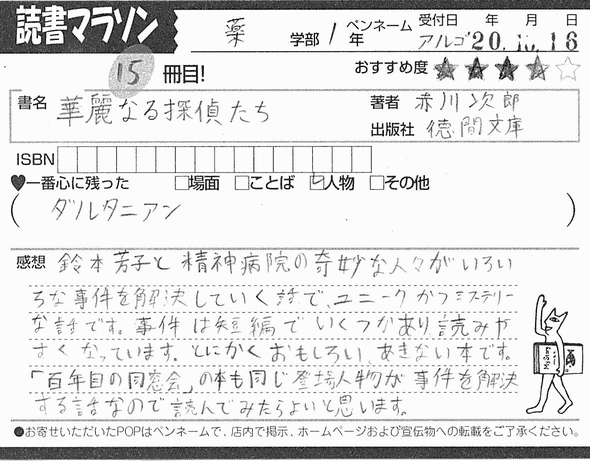 読書マラソン 薬 学部/1年 ペンネーム アルゴ 受付日 年 月 日 20.10.16
15冊目! おすすめ度 ★★★★☆
書名 華麗なる探偵たち 著者 赤川次郎
出版社 徳間文庫
ISBN
♥一番心に残った □場面 □ことば ☑人物 □その他
(ダルタニアン)
感想 鈴本芳子と精神病院の奇妙な人々がいろい
ろな事件を解決していく話で、ユニークかつミステリー
な話です。事件は短編でいくつかあり、読みや
すくなっています。とにかくおもしろい、あきない本です。
「百年目の同窓会」の本も同じ登場人物が事件を解決
する話なので読んでみたらよいと思います。
●お寄せいただいたPOPはペンネームで、店内で掲示、ホームページおよび宣伝物への転載をご了承ください。